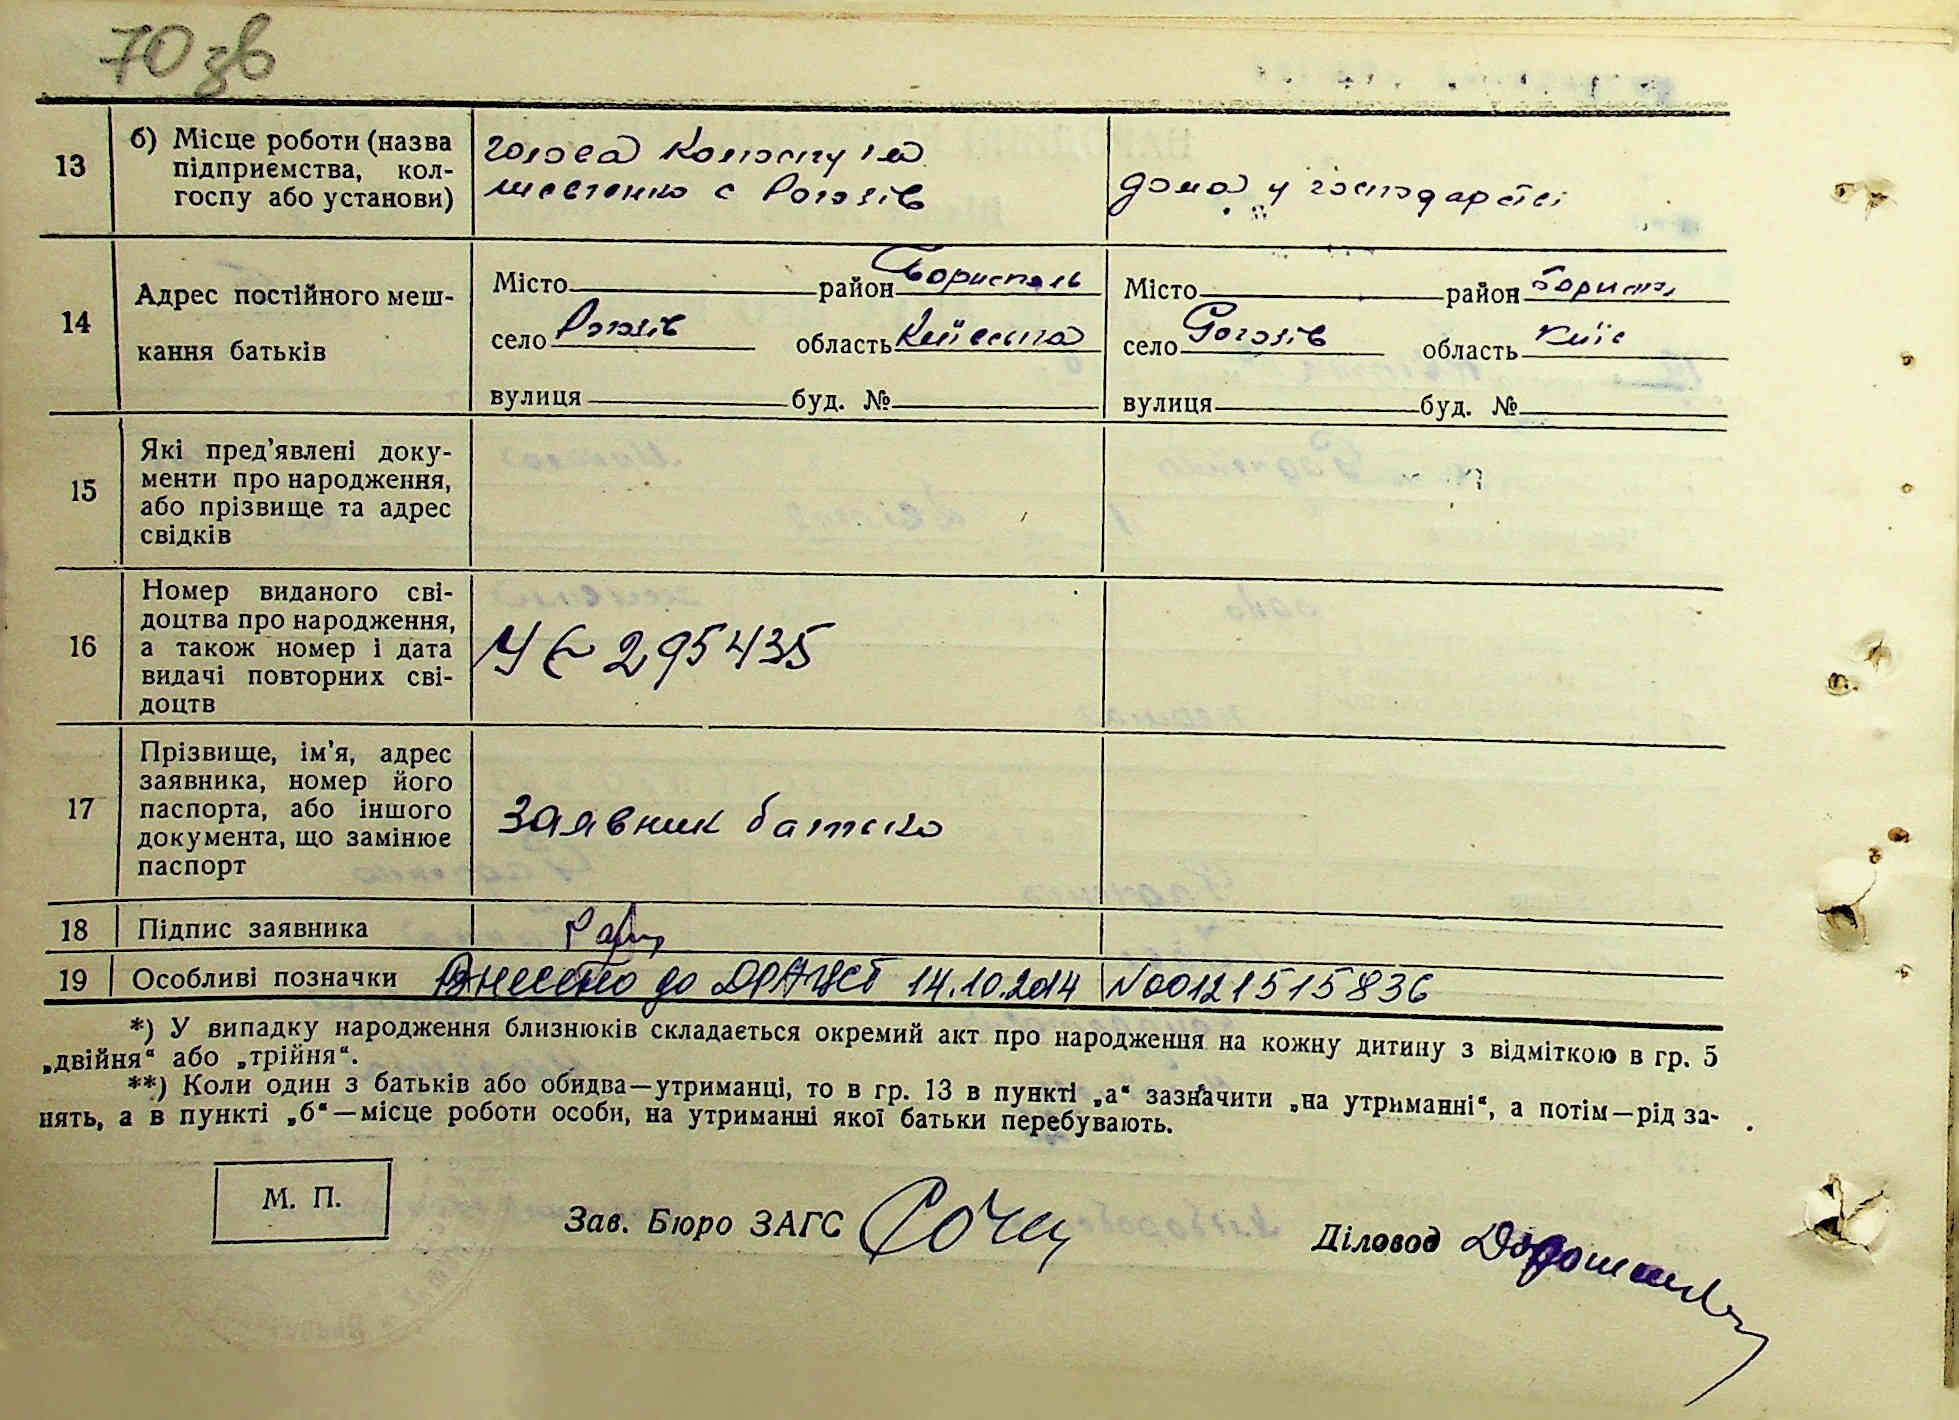 70 зв
13 б) Місце роботи (назва підприємства, кол-госпу або установи)
голова колгоспу ім
шевченко с Рогозів
дома у господарстві
14 Адрес постійного меш-
кання батьків
Місто район Бориспіль
село Рогозів область Київська
вулиця буд. №
Місто район Борисп
село Рогозів область Київ
вулиця буд. №
15 Які пред'явлені доку-
менти про народження,
або прізвище та адрес
свідків
16 Номер виданого сві-
доцтва про народження,
а також номер і дата
видачі повторних сві-
доцтв
УЄ 295435
17 Прізвище, ім'я, адрес
заявника, номер його
паспорта, або іншого
документа, що замінює
паспорт
Заявник батько
18 Підпис заявника
19 Особливі позначки Внесено до ДРАЦСГ 14.10.2014 №00121515836
*) У випадку народження близнюків складається окремий акт про народження на кожну дитину з відміткою в гр. 5
„двійня“ або „трійня“.
**) Коли один з батьків або обидва—утриманці, то в гр. 13 в пункті „а“ зазначити „на утриманні“, а потім—рід за-
нять, а в пункті „б“—місце роботи особи, на утриманні якої батьки перебувають.
М. П.
Зав. Бюро ЗАГС
Діловод